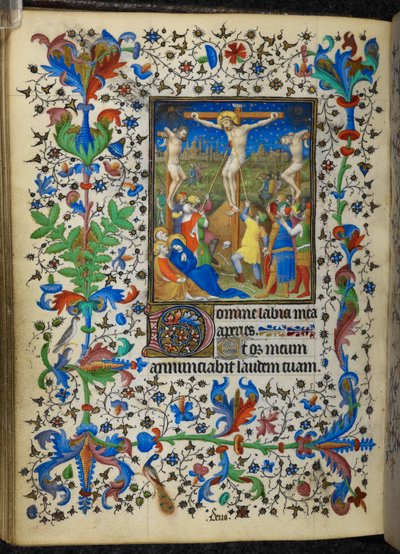 Domine labia mea
aperies.
Et os meum
annunciabit laudem tuam.
.Deus.